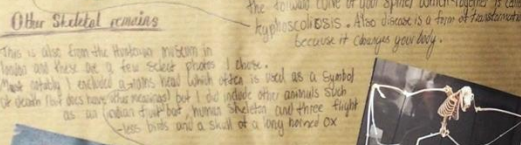 the forward curve of your spine, which together is called
kyphoscoliosis. Also disease is a form of transformation
because it changes your body.
Other Skeletal remains
This is also from the Hunterian museum in
london and these are a few select photos I chose.
Most notably I included a head which often is used as a symbol
of death (but does have other meanings) but I did include other animals such
as an indian fruit bat, human skeleton and three flight
-less birds and a skull of a long horned ox